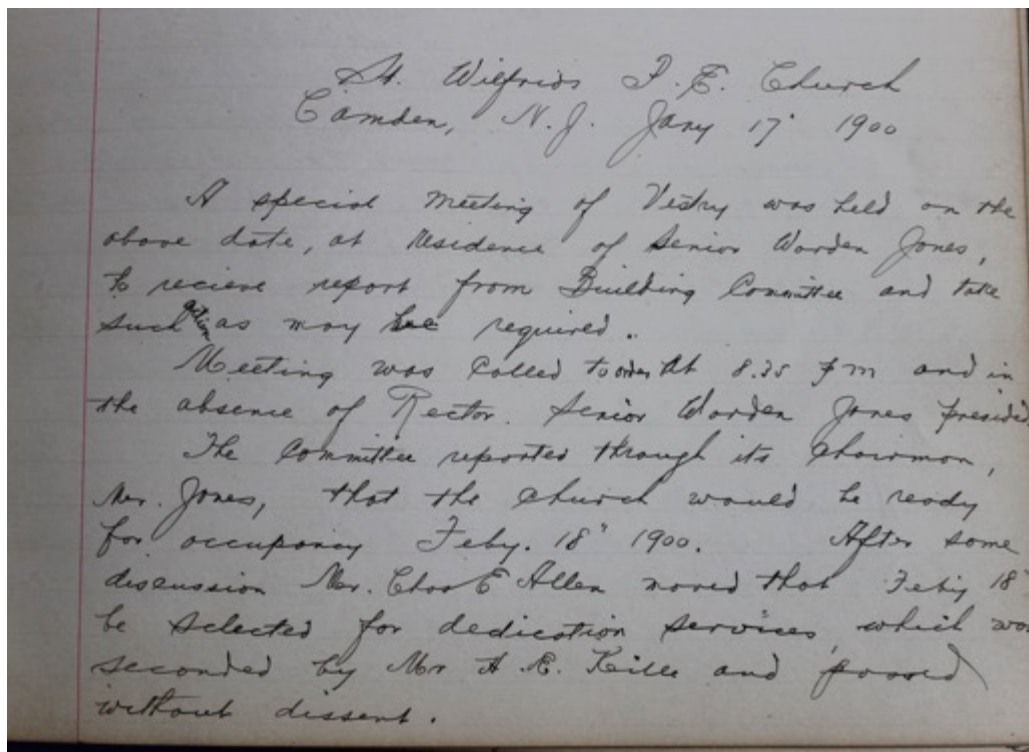 St. Wilfrids P. E. Church
Camden, N. J. Jany 17" 1900
A special meeting of Vestry was held on the
above date, at Residence of Senior Warden Jones,
to recieve report from Building Committee and take
such action as may be required.
Meeting was Called to order At 8.35 P m and in
the absence of Rector. Senior Warden Jones presided
The Committee reported through its Chairman,
Mr. Jones, that the church would be ready
for occupancy Feby. 18" 1900. After some
discussion Mr. Chas E Allen moved that Feby 18"
be selected for dedication services, which was
seconded by Mr H. E. and passed
without dissent.